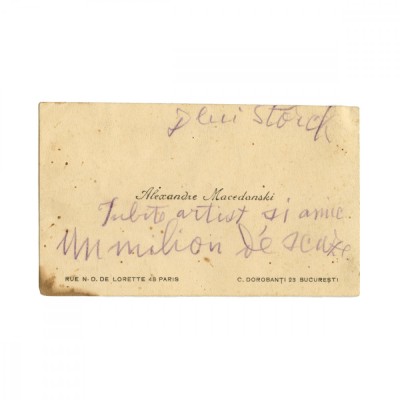 Dlui Storck
Alexandre Macedonski
Iubite artist si amic
Un milion de scuze
RUE N-D. DE LORETTE 45 PARIS
C. DOROBANȚI 25 BUCUREȘTI